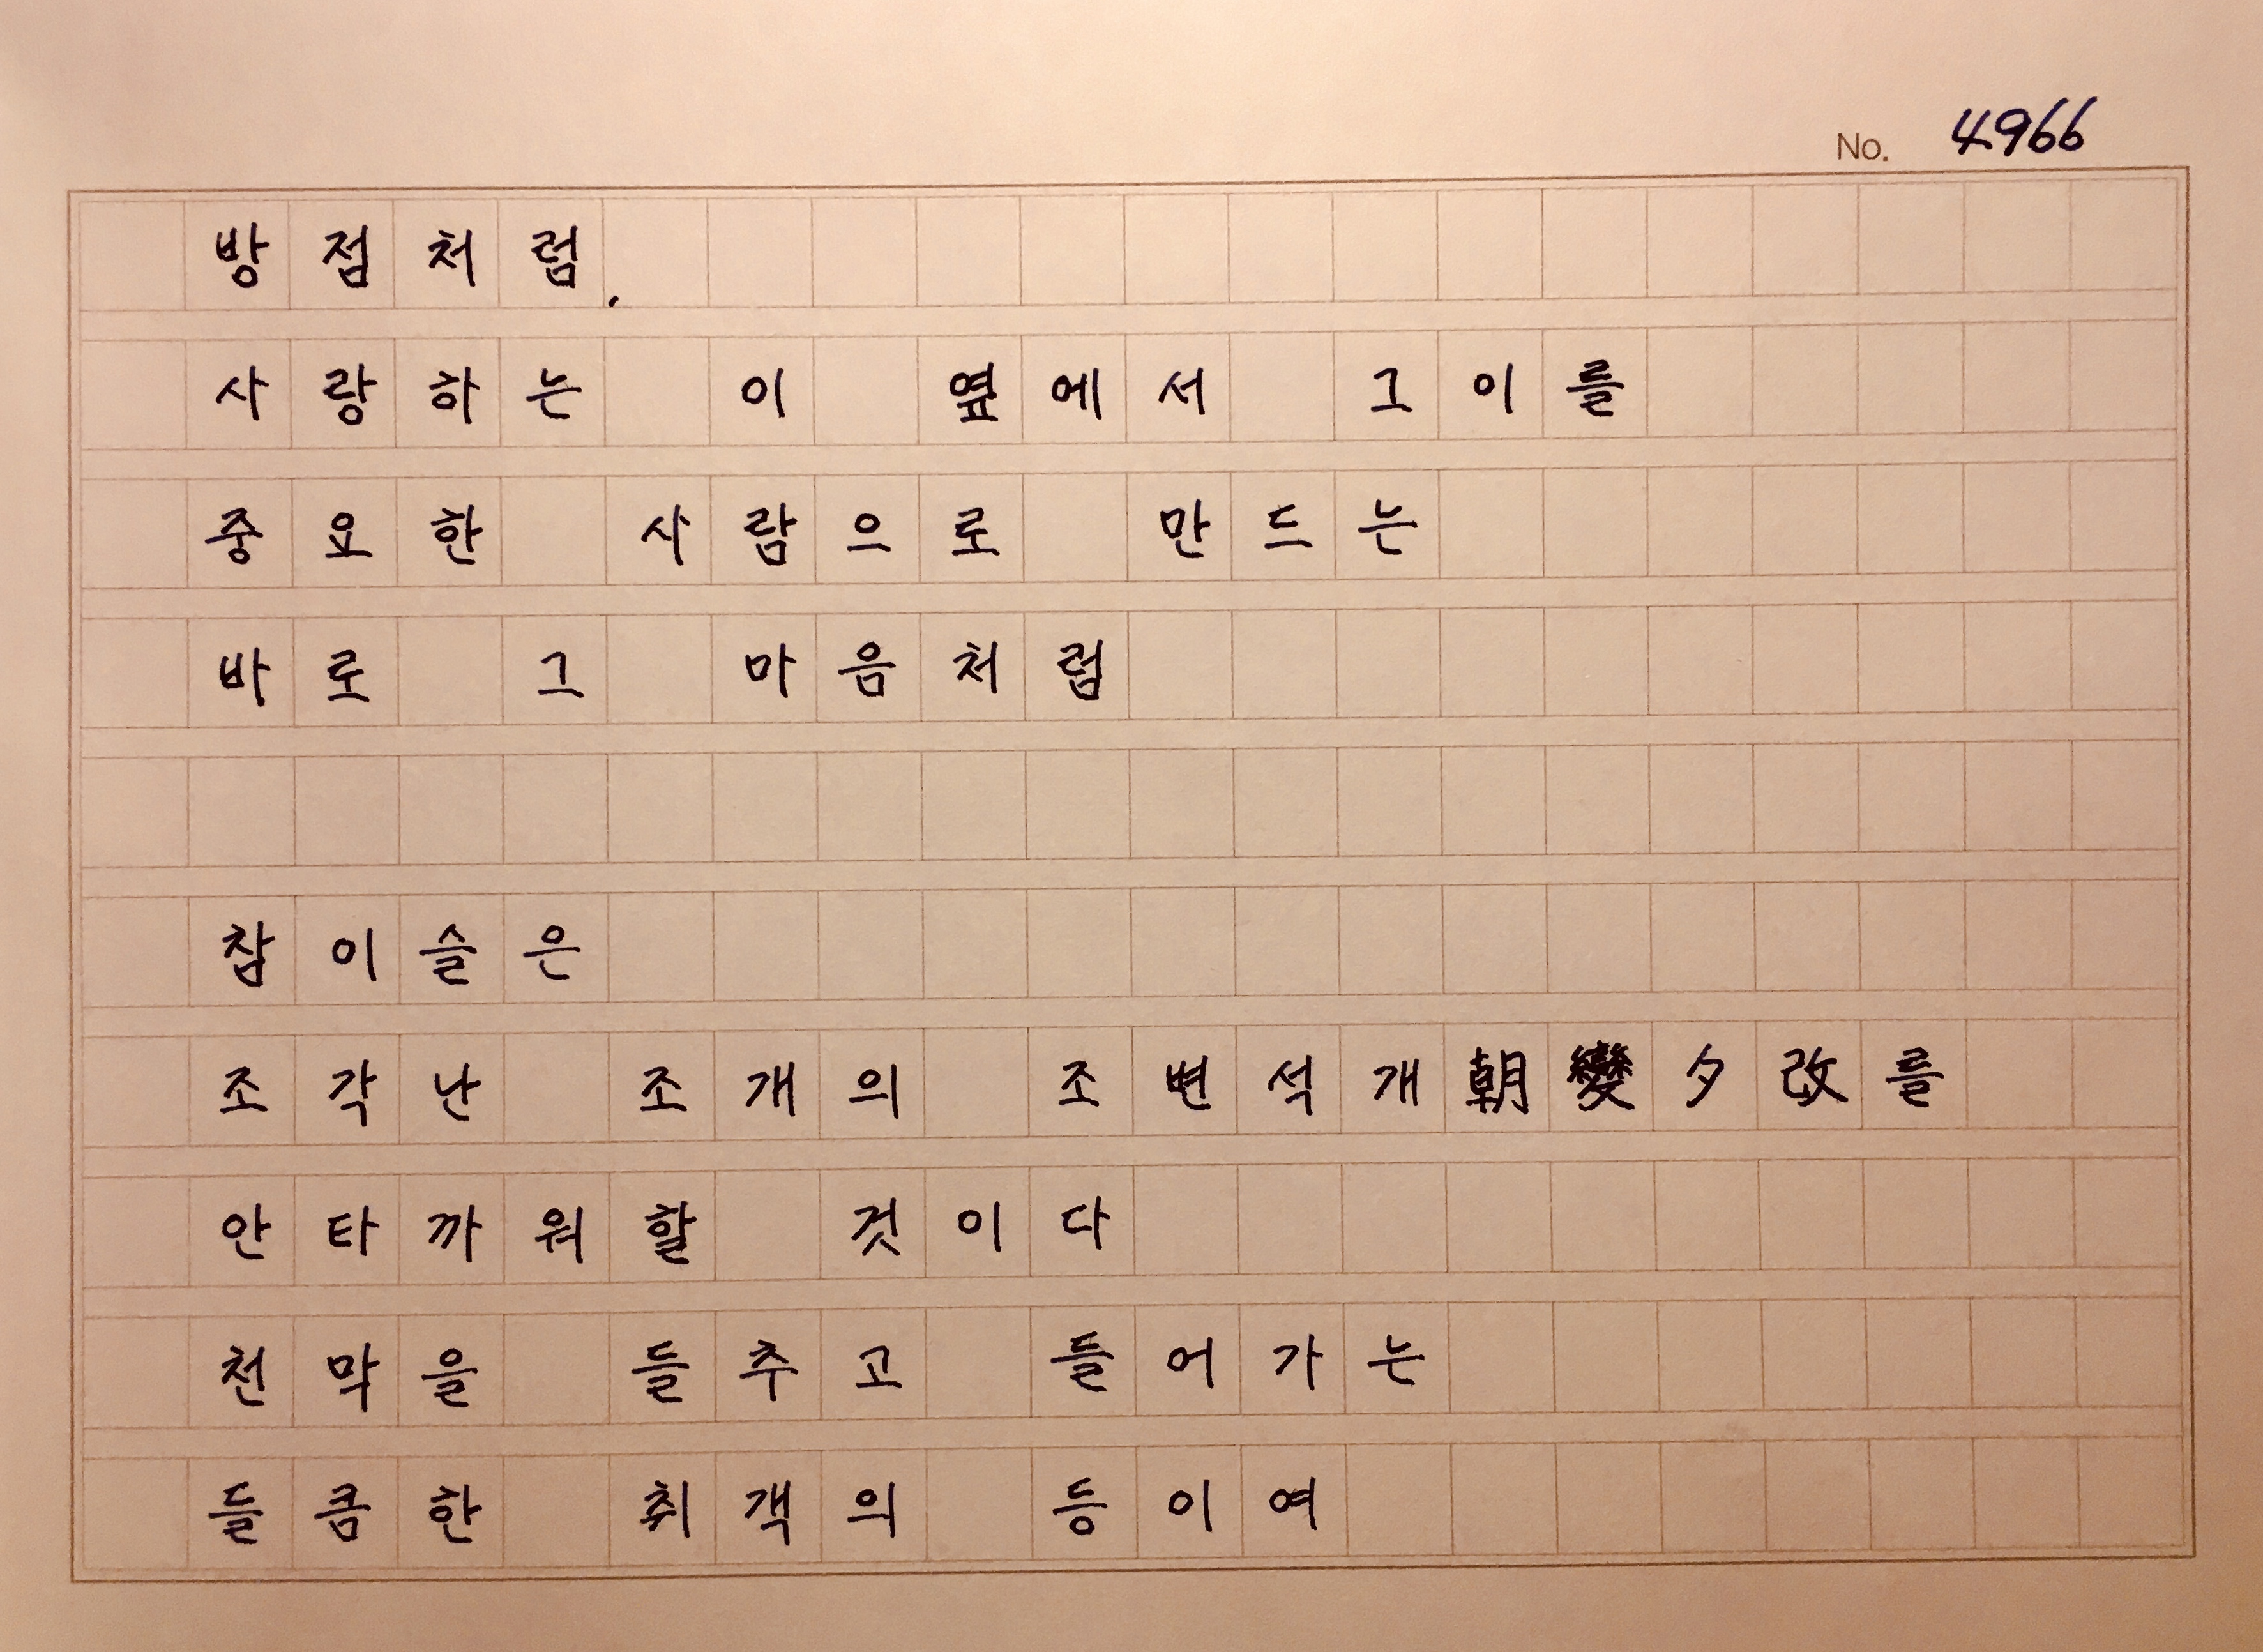 No. 4966
방점처럼,
사랑하는 이 옆에서 그이를
중요한 사람으로 만드는
바로 그 마음처럼
참이슬은
조각난 조개의 조변석개朝變夕改를
안타까워할 것이다
천막을 들추고 들어가는
들큼한 취객의 등이여